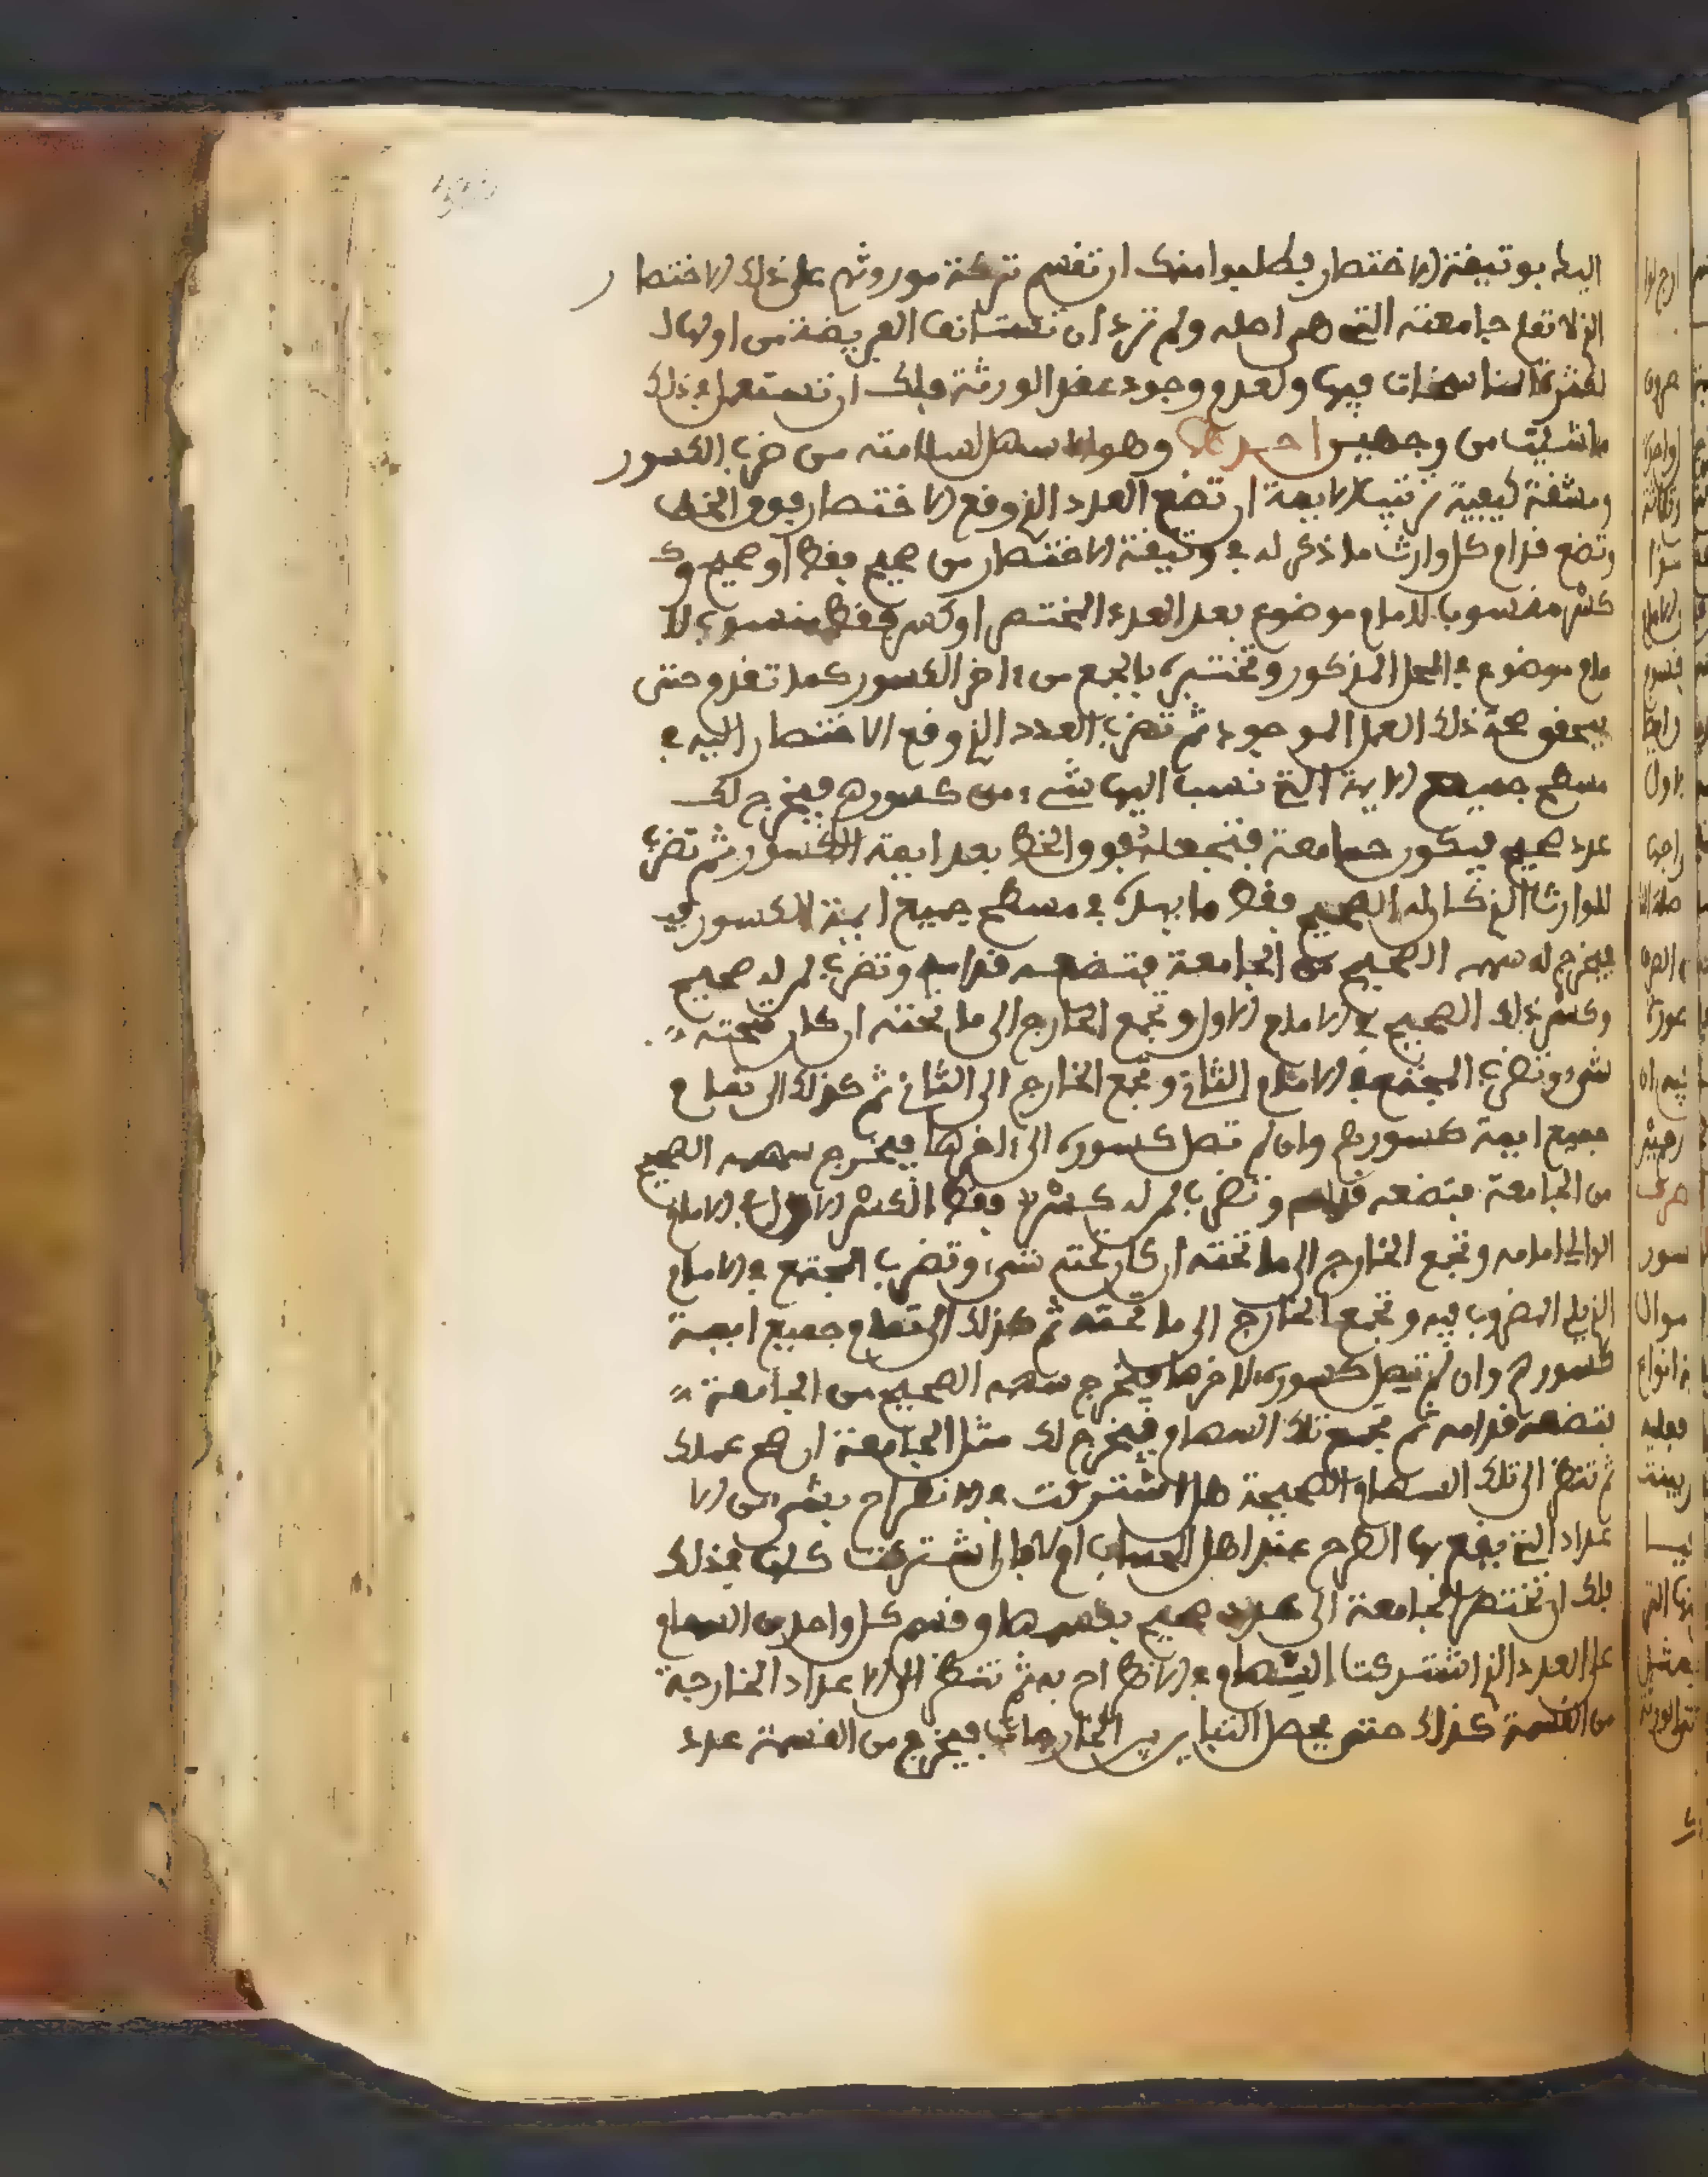 اليك بوتيقة الاختصار فطلبوا منك ان تقسم تركة موروثهم على ذلك الاختصار
الذي لا تعلم جامعته التي هي اصله ولم ترد ان تستانف الفريضة من اولها
لكثرة المناسخات فيها ولعدم وجود بعض الورثة فلك ان تستعمل في ذلك
ما شئت من وجهين احدها وهو الاسهل لسلامته من ضرب الكسور
ومشقة كيفية ترتيب الايمة ان تضع العدد الذي وقع الاختصار فوق الخط
وتضع قدام كل وارث ما ذكر له في وتيقة الاختصار من صحيح فقط او صحيح و
كسر منسوبا لامام موضوع بعد العدد المختصر او كسر فقط منسوب لا
مام موضوع في المحل المذكور وتختبره بالجمع من اخر الكسور كما تقدم حتى
يتحقق صحة ذلك العمل الموجود ثم تضرب العدد الذي وقع الاختصار اليه في
مسطح جميع الايمة التي نسب اليها شيء من كسورهم فيخرج لك
عدد صحيح فيكون جامعة فتجعله فوق الخط بعد ايمة الكسور ثم تضرب
للوارث الذي كان له الصحيح فقط ما بيده في مسطح جميع ايمة الكسور
فيخرج له سهمه الصحيح من الجامعة فتضعه قدامه وتضرب لمن له صحيح
وكسر ذلك الصحيح في الامام الاول وتجمع الخارج الى ما تحته ان كان تحته
شيء وتضرب المجتمع في الامام الثاني وتجمع الخارج الى الثاني ثم كذلك الى تمام
جميع ايمة كسورهم وان لم تصل كسوره الى اخرها فيخرج سهمه الصحيح
من الجامعة فتضعه قدامه وتضرب لمن له كسر فقط الكسر الاول في الامام
الوالي امامه وتجمع الخارج الى ما تحته ان كان تحته شيء وتضرب المجتمع في الامام
الذي يلي المضروب فيه وتجمع الخارج الى ما تحته ثم كذلك الى تمام جميع ايمة
كسورهم وان لم تصل كسوره لاخرها فيخرج سهمه الصحيح من الجامعة
فتضعه قدامه ثم تجمع تلك السهام فيخرج لك مثل الجامعة ان صح عملك
ثم تنظر الى تلك السهام الصحيحة هل اشتركت في الانطراح بشيء من الا
عداد التي يقع بها الطرح عند اهل الحساب ام لا فان اشتركت كلها في ذلك
فلك ان تختصر الجامعة الى عدد صحيح بقسمها وقسم كل واحد من السهام
على العدد الذي اشتركت السهام في الانطراح به ثم تنظر الى الاعداد الخارجة
من القسمة كذلك حتى يحصل التباين بين الخارجات فيخرج من القسمة عدد